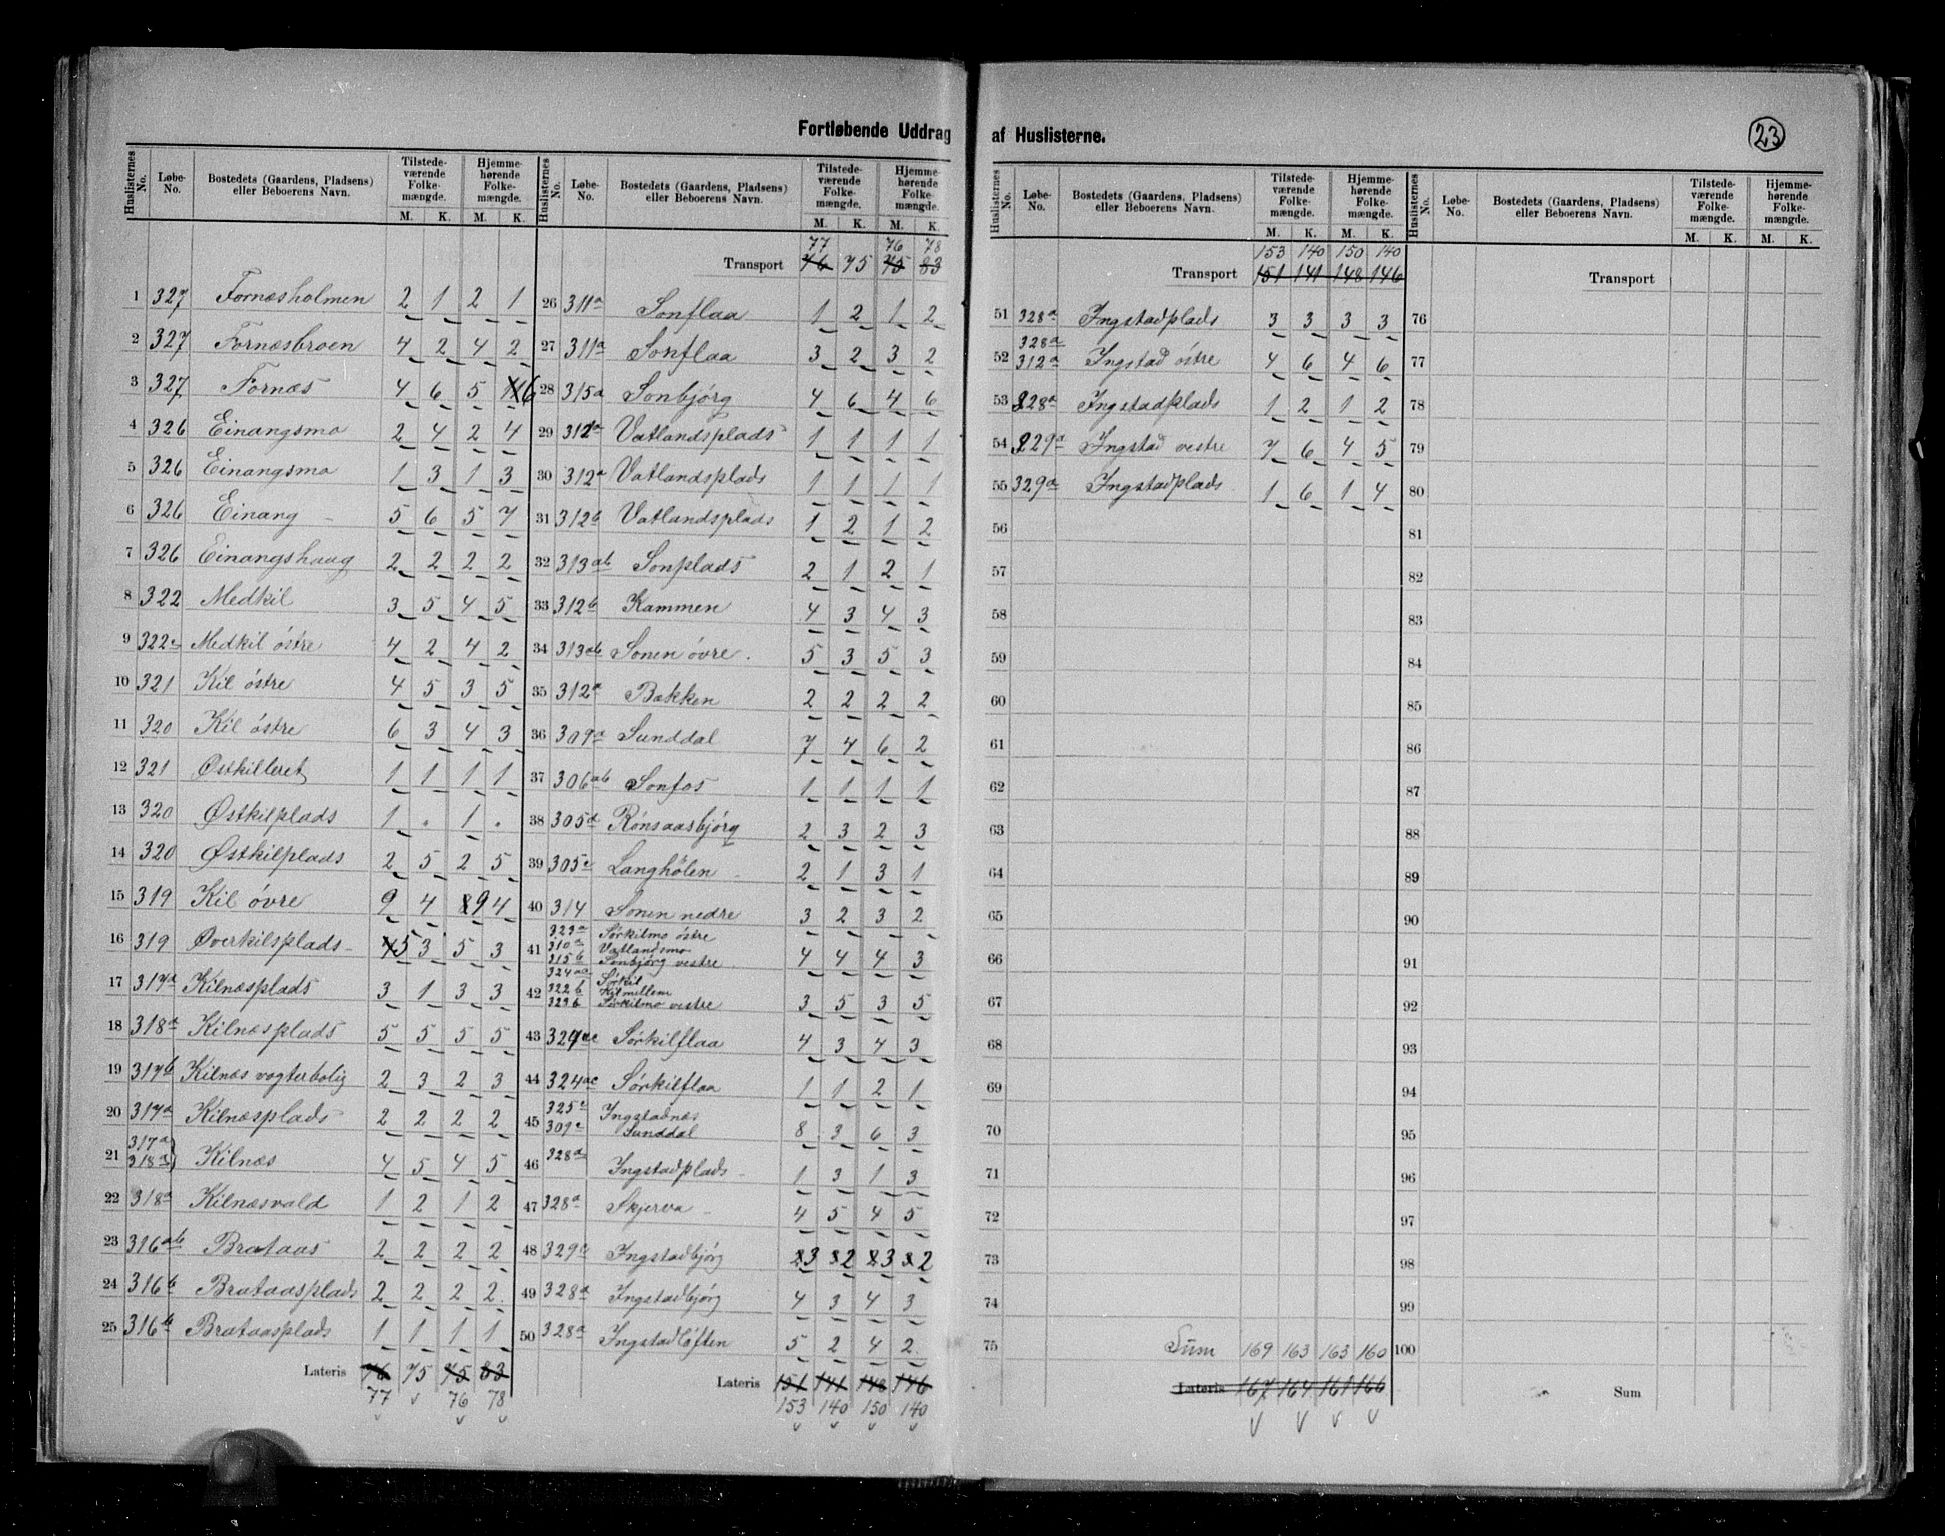 Fortløbende Uddrag af Huslisterne.
23
Huslisternes No. Løbe-No. Bostedets (Gaardens, Pladsens) eller Beboerens Navn. Tilstedeværende Folkemængde. M. K. Hjemmehørende Folkemængde. M. K.
1 327 Fornæsholmen 2 1 2 1
2 327 Fornæsbroen 4 2 4 2
3 327 Fornæs 4 6 5 6
4 326 Einangsmo 2 4 2 4
5 326 Einangsmo 1 3 1 3
6 326 Einang 5 6 5 7
7 326 Einangshaug 2 2 2 2
8 322 Medkil 3 5 4 5
9 322c Medkil østre 4 2 4 2
10 321 Kil østre 4 5 3 5
11 320 Kil østre 6 3 4 3
12 321 Østkilleret 1 1 1 1
13 320 Østkilplads 1 . 1 .
14 320 Østkilplads 2 5 2 5
15 319 Kil øvre 9 4 9 4
16 319 Øverkilsplads 5 3 5 3
17 317a Kilnæsplads 3 1 3 3
18 318a Kilnæsplads 5 5 5 5
19 317b Kilnæs vogterbolig 2 3 2 3
20 317a Kilnæsplads 2 2 2 2
21 317a 318a Kilnæs 4 5 4 5
22 318a Kilnæsvald 1 2 1 2
23 316ab Brataas 2 2 2 2
24 316b Brataasplads 2 2 2 2
25 316b Brataasplads 1 1 1 1
Lateris 76 75 75 83
77 76 78
Huslisternes No. Løbe-No. Bostedets (Gaardens, Pladsens) eller Beboerens Navn. Tilstedeværende Folkemængde. M. K. Hjemmehørende Folkemængde. M. K.
77 76 78
Transport 76 75 75 83
26 311a Sonflaa 1 2 1 2
27 311a Sonflaa 3 2 3 2
28 315a Sonbjørg 4 6 4 6
29 312a Vatlandsplads 1 1 1 1
30 312a Vatlandsplads 1 1 1 1
31 312b Vatlandsplads 1 2 1 2
32 313ab Sonplads 2 1 2 1
33 312b Kammen 4 3 4 3
34 313ab Sonen øvre 5 3 5 3
35 312a Bakken 2 2 2 2
36 309a Sunddal 7 4 6 2
37 306ab Sonfos 1 1 1 1
38 305d Rønsaasbjørg 2 3 2 3
39 305c Langhølen 2 1 3 1
40 314 Sonen nedre 3 2 3 2
323a Sørkilmo østre
41 310a Vatlandsmo
315b Sonbjørg vestre 4 4 4 3
324ac Sørkil
42 322b Kilmellem
323b Sørkilmo vestre 3 5 3 5
43 324ac Sørkilflaa 4 3 4 3
44 324ac Sørkilflaa 1 1 2 1
325c Ingstadnæs
45 309c Sunddal 8 3 6 3
46 328a Ingstadplads 1 3 1 3
47 328a Skjerva 4 5 4 5
48 329a Ingstadbjørg 3 2 3 2
49 328a Ingstadbjørg 4 3 4 3
50 328a Ingstadløften 5 2 4 2
Lateris 151 141 148 146
153 140 150 140
Huslisternes No. Løbe-No. Bostedets (Gaardens, Pladsens) eller Beboerens Navn. Tilstedeværende Folkemængde. M. K. Hjemmehørende Folkemængde. M. K.
153 140 150 140
Transport 151 141 148 146
51 328a Ingstadplads 3 3 3 3
328a
52 312a Ingstad østre 4 6 4 6
53 328a Ingstadplads 1 2 1 2
54 329a Ingstad vestre 7 6 4 5
55 329a Ingstadplads 1 6 1 4
56
57
58
59
60
61
62
63
64
65
66
67
68
69
70
71
72
73
74
75 Sum 169 163 163 160
Lateris 167 164 161 166
Huslisternes No. Løbe-No. Bostedets (Gaardens, Pladsens) eller Beboerens Navn. Tilstedeværende Folkemængde. M. K. Hjemmehørende Folkemængde. M. K.
Transport
76
77
78
79
80
81
82
83
84
85
86
87
88
89
90
91
92
93
94
95
96
97
98
99
100
Sum